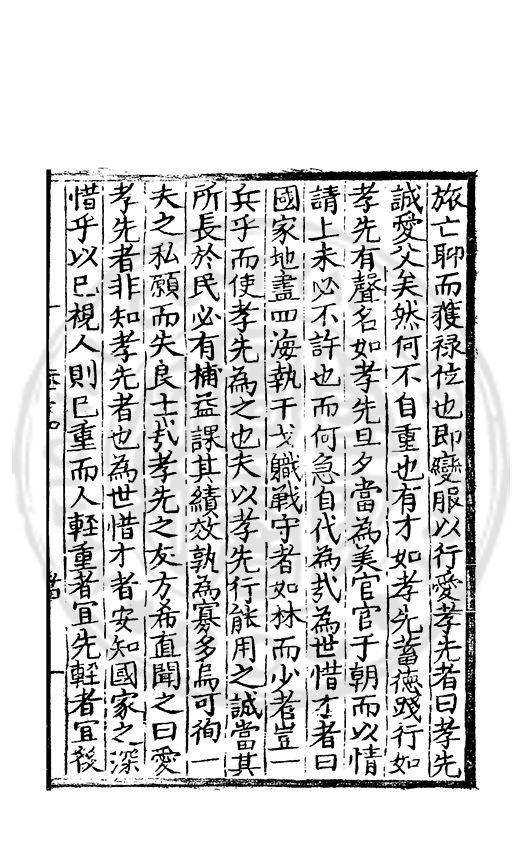 旅亡聊而獲祿位也即變服以行愛孝先者曰孝先
誠愛父矣然何不自重也有才如孝先蓄德踐行如
孝先有聲名如孝先旦夕當為美官官于朝而以情
請上未必不許也而何急自代為㢤為世惜才者曰
國家地盡四海執干戈職戰守者如林而少者豈一
兵乎而使孝先為之也夫以孝先行能用之誠當其
所長於民必有補益課其績效孰為寡多烏可徇一
夫之私願而失良士㢤孝先之友方希直聞之曰愛
孝先者非知孝先者也為世惜才者安知國家之深
惜乎以巳視人則巳重而人輊重者宜先輊者宜後